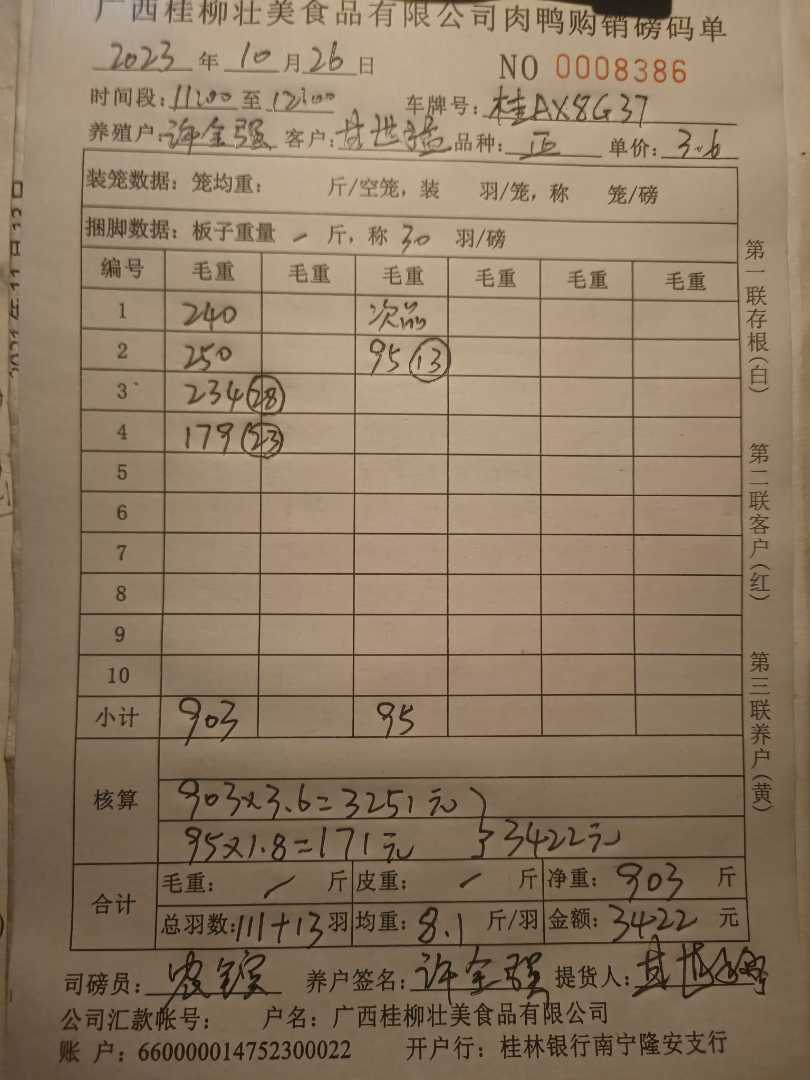 广西桂柳壮美食品有限公司肉鸭购销磅码单
2023 年 10 月 26 日 NO 0008386
时间段: 11:00 至 12:00 车牌号: 桂AX8G37
养殖户: 许全强 客户: 品种: 正 单价: 3.6
装笼数据: 笼均重: 斤/空笼, 装 羽/笼, 称 笼/磅
捆脚数据: 板子重量 - 斤, 称 30 羽/磅
编号 毛重 毛重 毛重 毛重 毛重 毛重
1 240 次品
2 250 95 13
3 234 28
4 179 23
5
6
7
8
9
10
小计 903 95
核算
903×3.6=3251元
95×1.8=171元 } 3422元
合计
毛重: - 斤 皮重: - 斤 净重: 903 斤
总羽数: 111+13 羽 均重: 8.1 斤/羽 金额: 3422 元
司磅员: 养户签名: 许全强 提货人:
公司汇款帐号: 户名: 广西桂柳壮美食品有限公司
账 户: 660000014752300022 开户行: 桂林银行南宁隆安支行
第一联存根(白)
第二联客户(红)
第三联养户(黄)